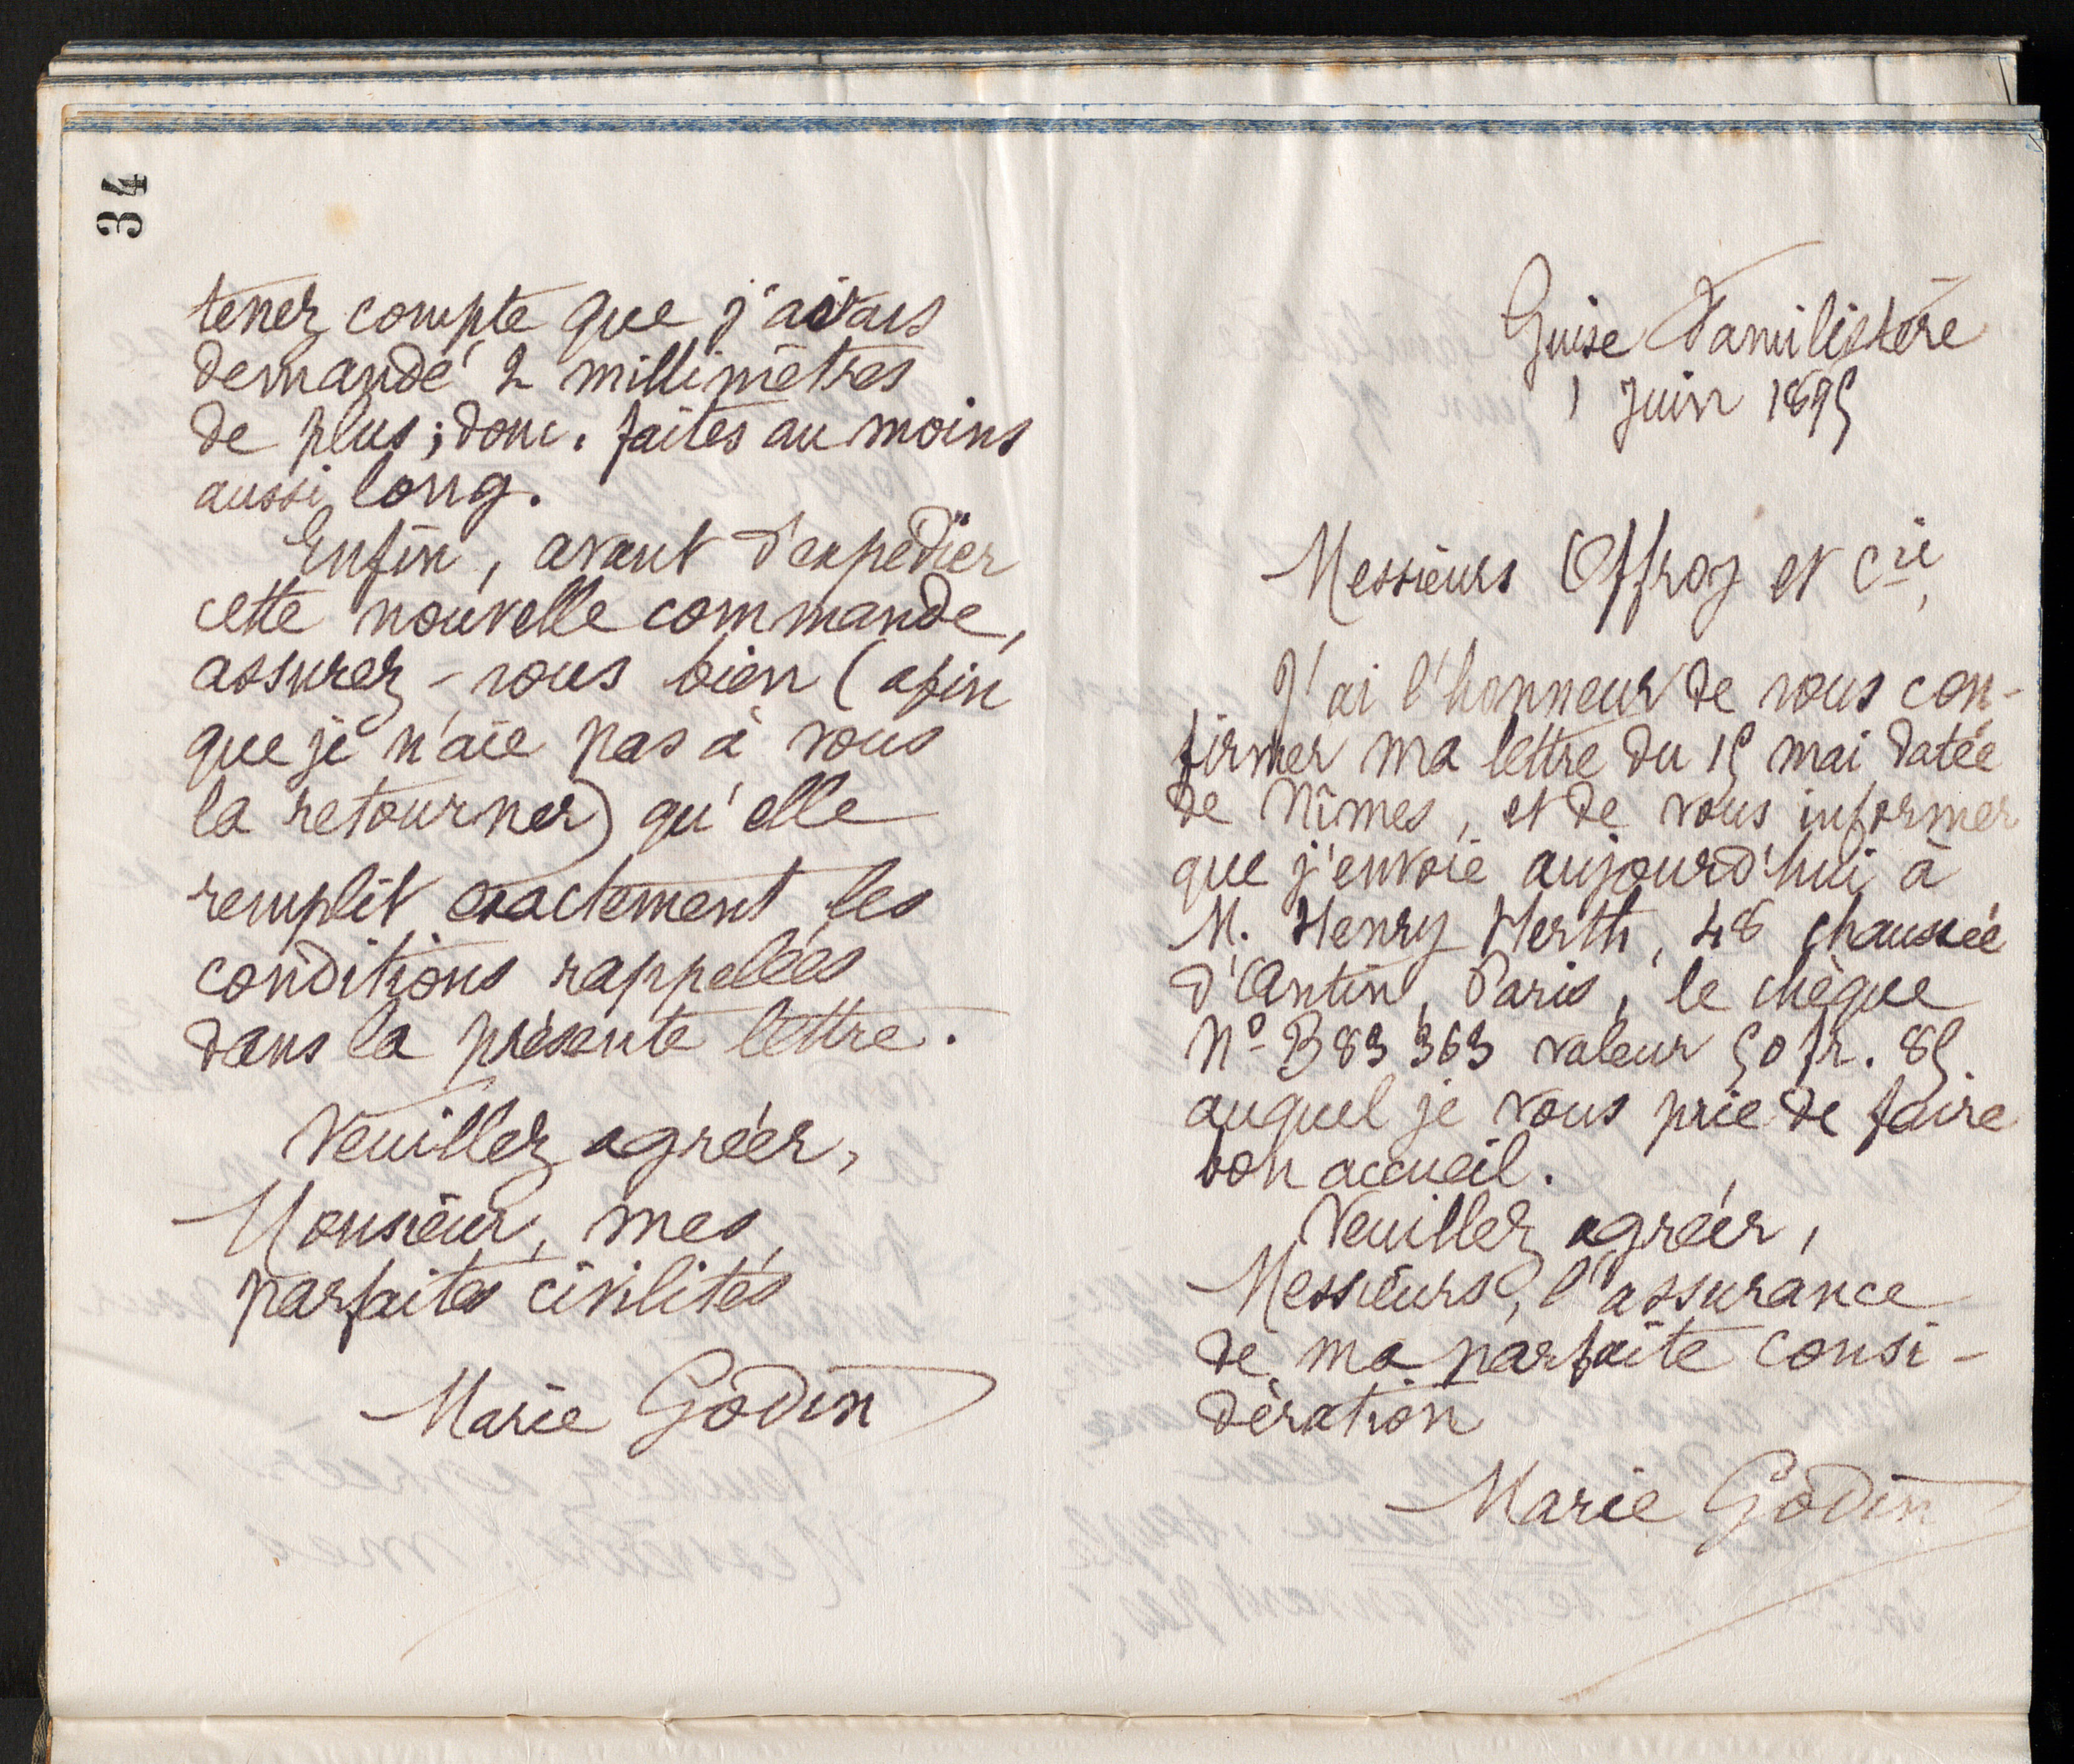 34
tenez compte que j'avais
demandé 2 millimètres
de plus ; donc. faites au moins
aussi long.
Enfin, avant d'expédier
cette nouvelle commande,
assurez-vous bien (afin
que je n'aie pas à vous
la retourner) qu'elle
remplit exactement les
conditions rappelées
dans la présente lettre.
Veuillez agréer,
Monsieur, mes
parfaites civilités
Marie Godin
Guise Familistère
1 Juin 1895
Messieurs Offroy et Cie,
J'ai l'honneur de vous con-
firmer ma lettre du 15 mai datée
de Nîmes, et de vous informer
que j'envoie aujourd'hui à
M. Henry Merth, 48 chaussée
d'Antin, Paris, le chèque
No B 83 363 valeur 50 fr. 85
auquel je vous prie de faire
bon accueil.
Veuillez agréer,
Messieurs, l'assurance
de ma parfaite consi-
dération
Marie Godin